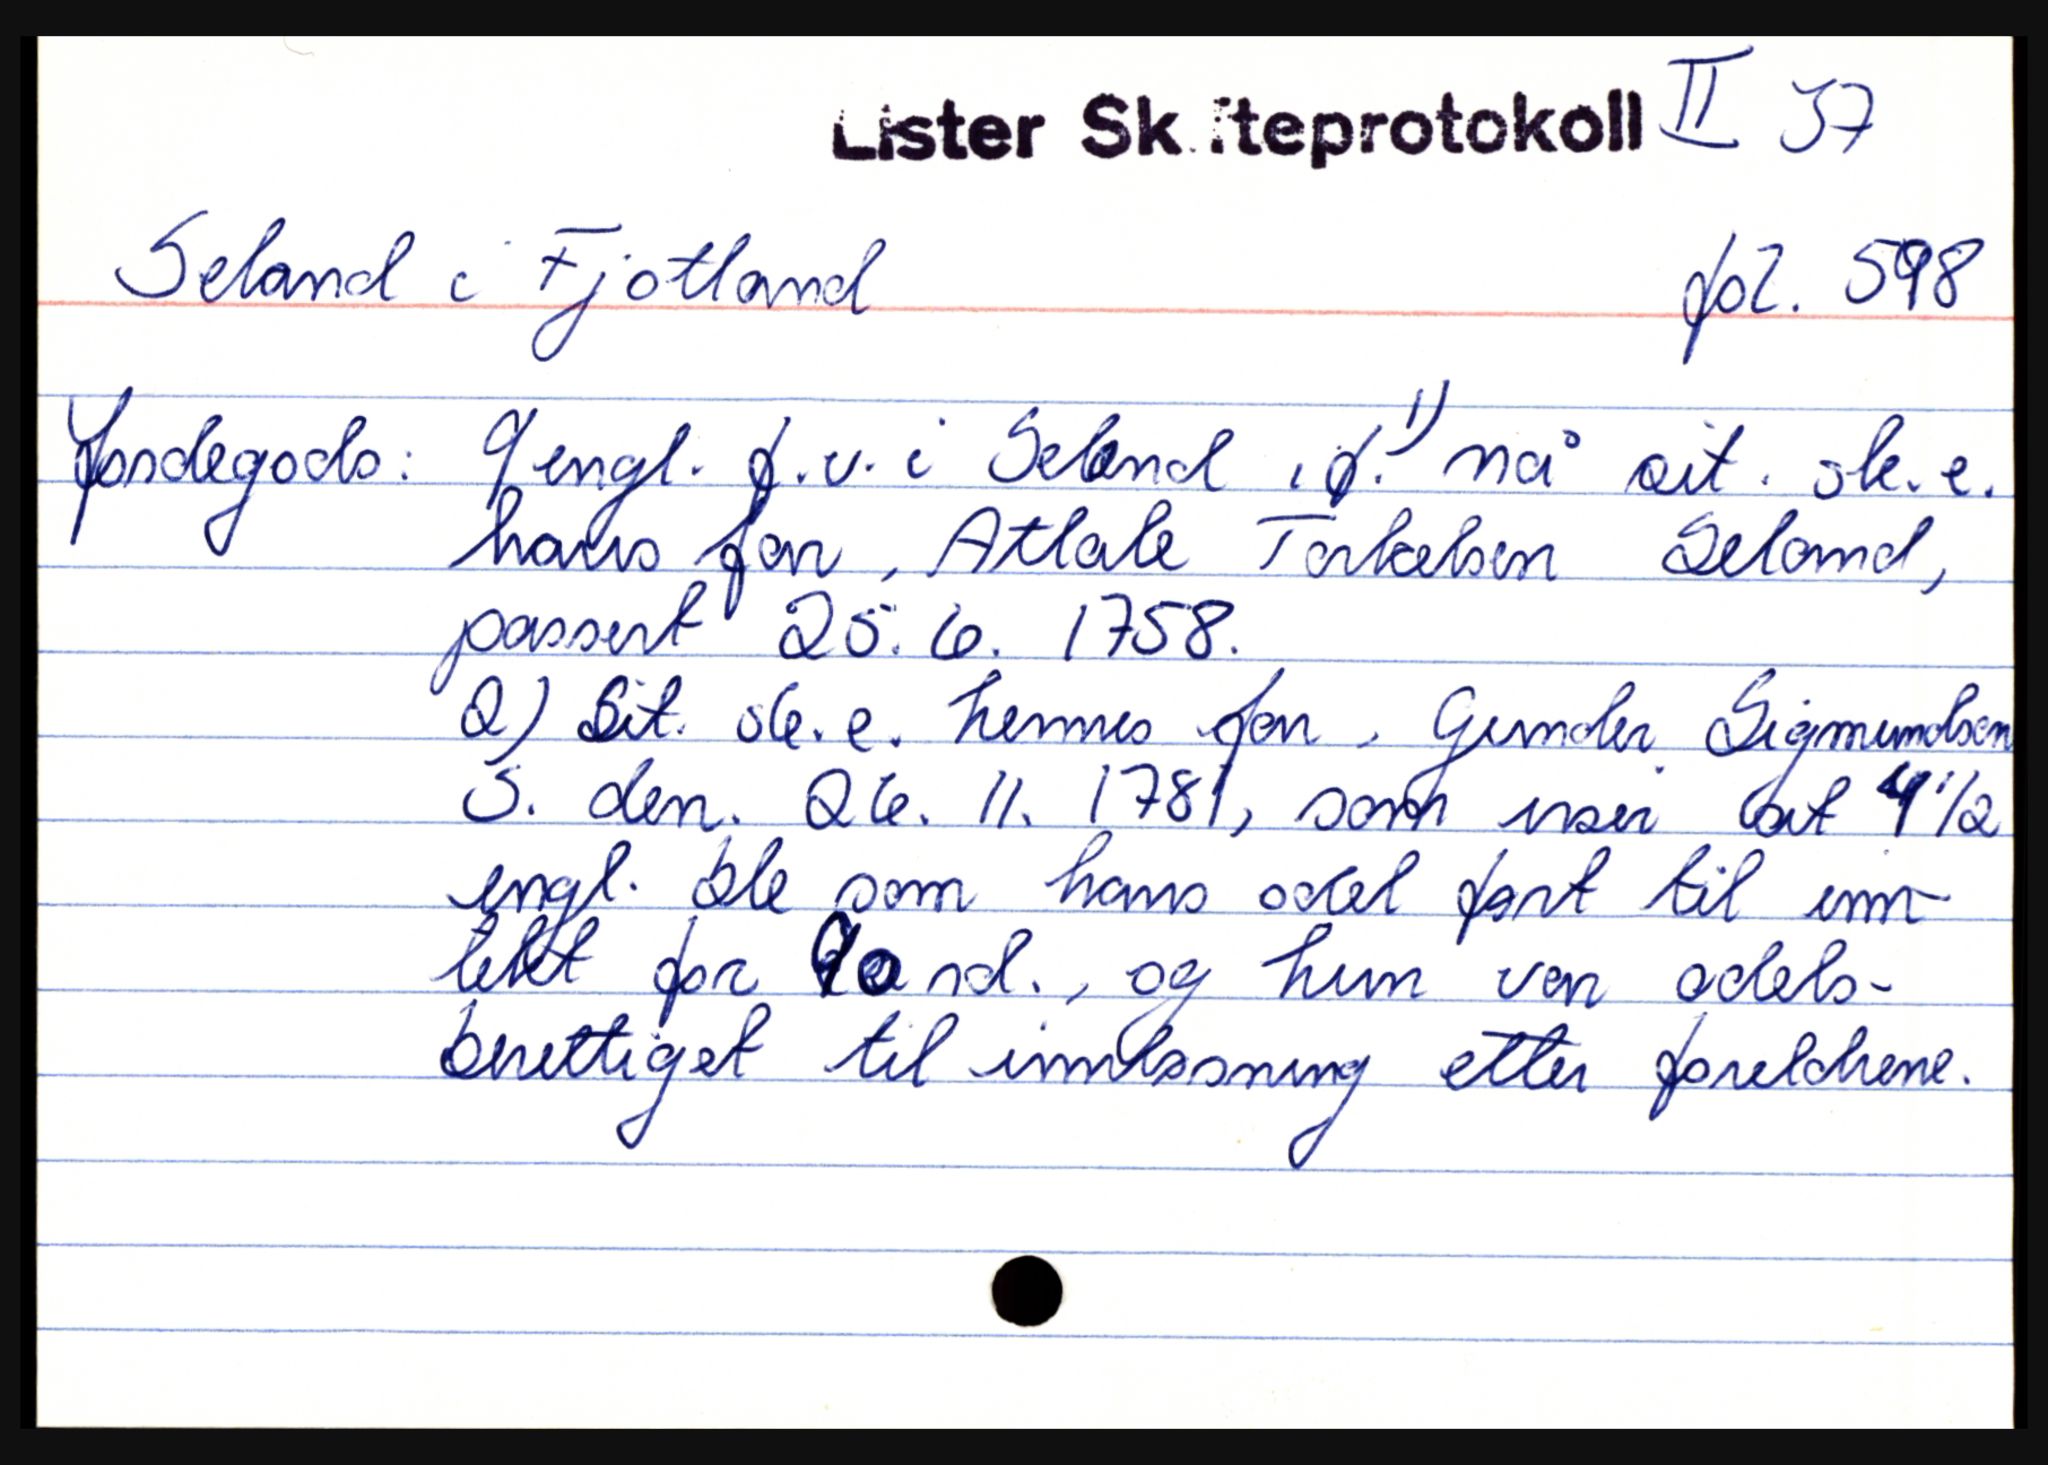 Lister Skifteprotokoll II 37
Seland i Fjotland fol. 598
Jordegods: 9 engl. f.v. i Seland, f. 1) nå sit. sk. e.
hans far, Atlak Torkelsen Seland,
passert 25. 6. 1758.
2) Sit. sk. e. hennes far, Gunder Sigmundsen
S. den. 26. 11. 1781, som viser at 4 1/2
engl. ble som hans odel ført til inn-
tekt for 90 rd., og hun var odels-
berettiget til innløsning etter foreldrene.